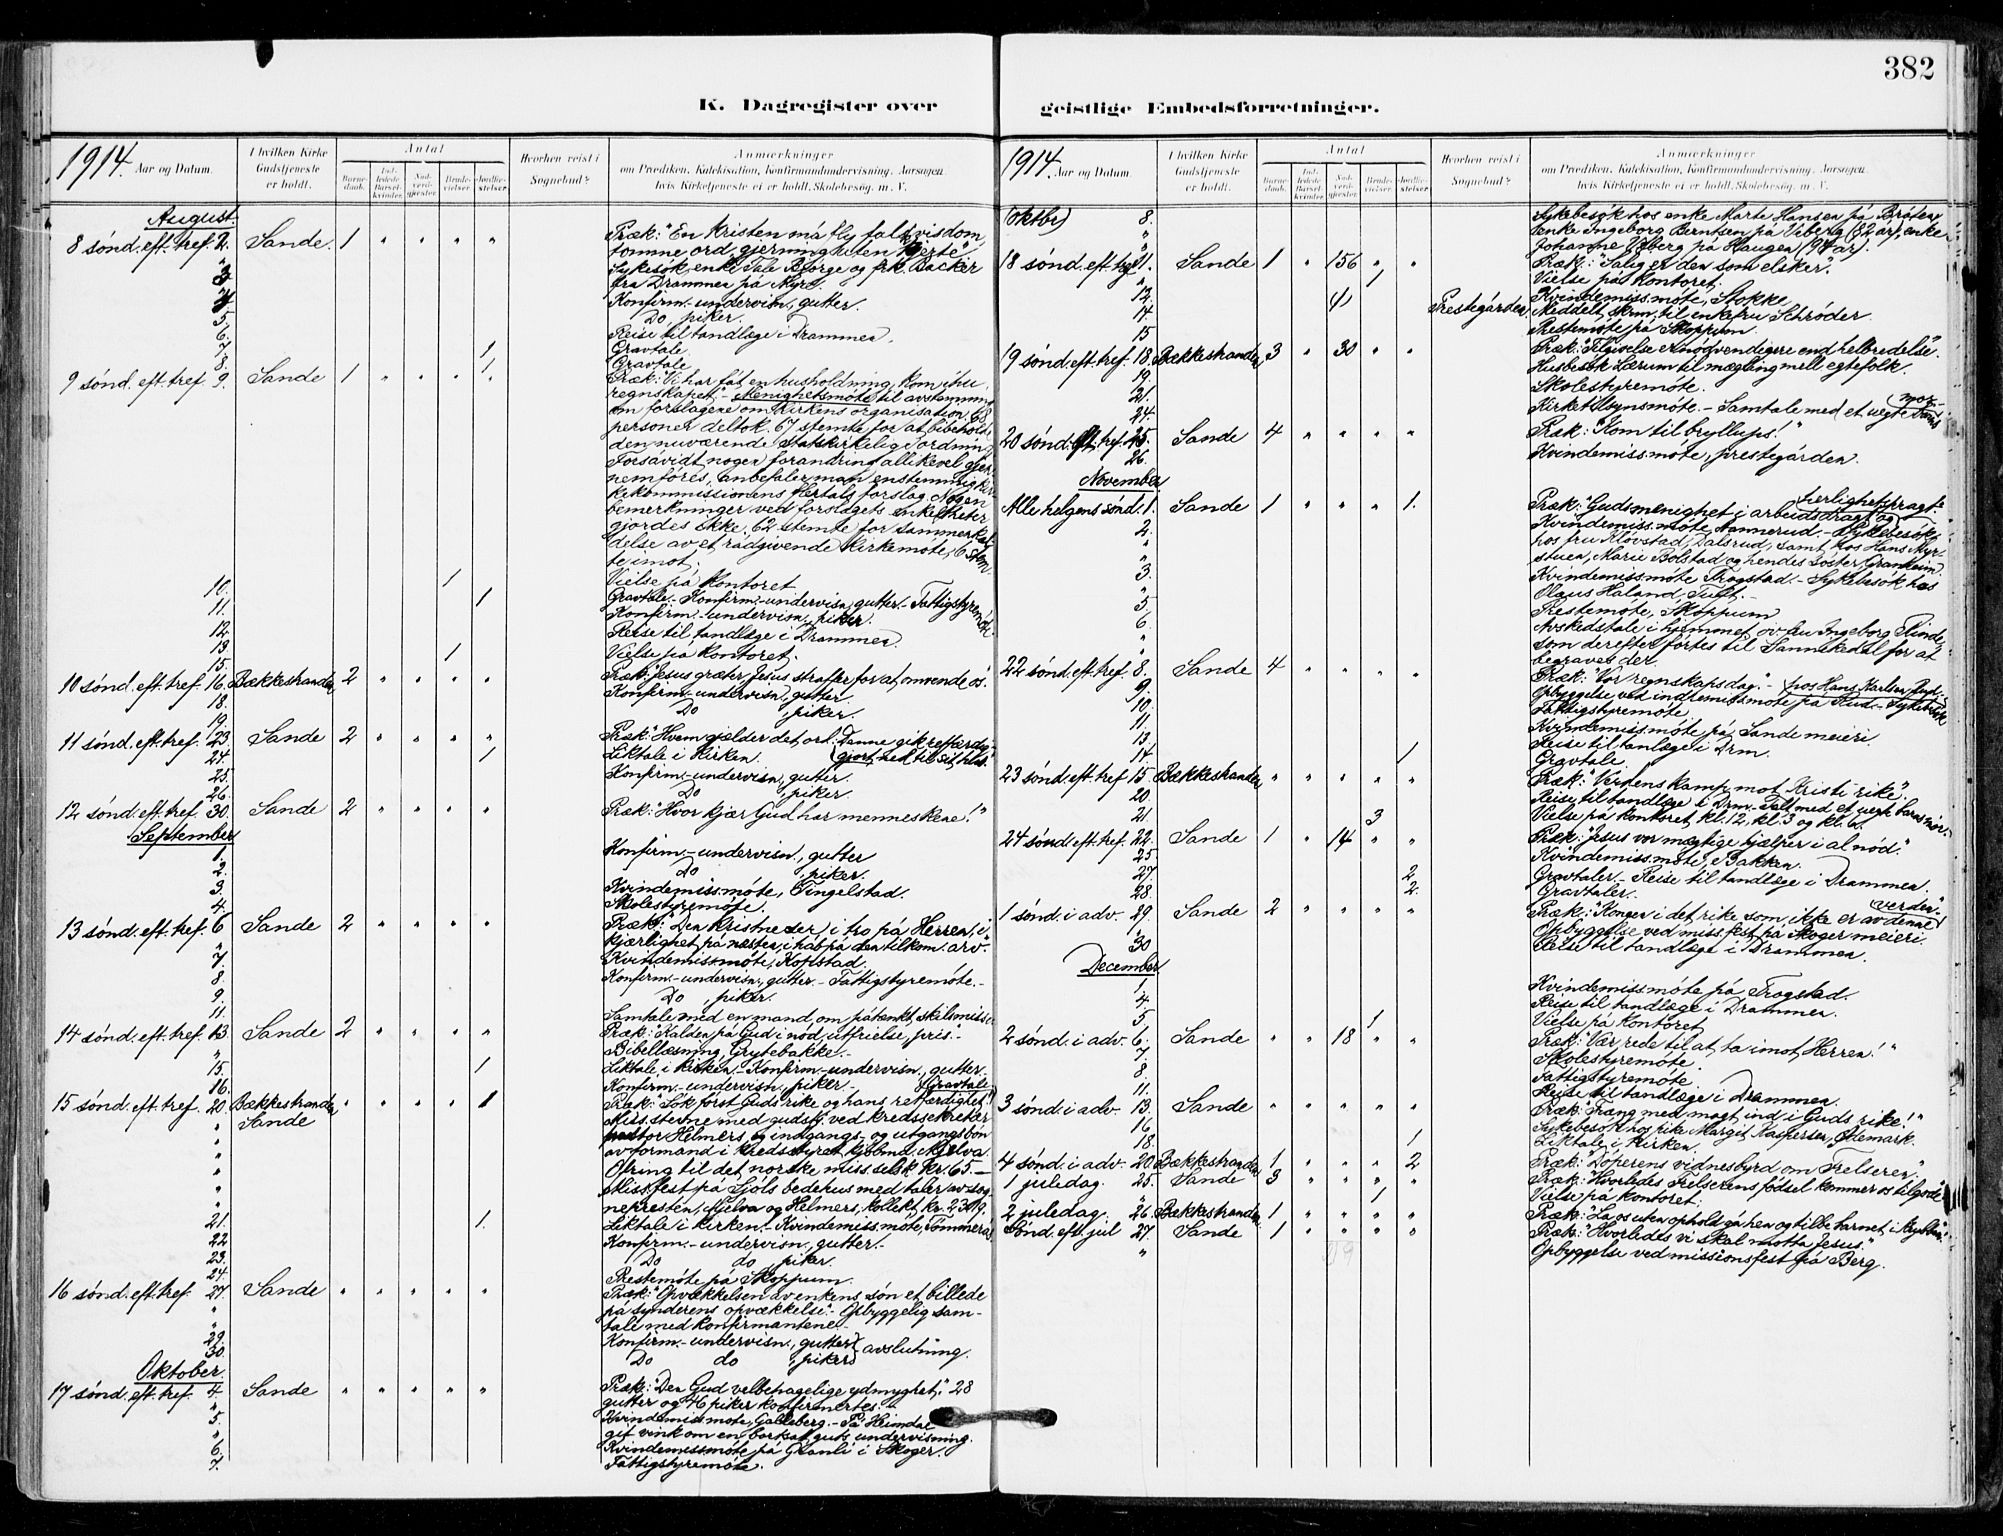 382
K. Dagregister over
geistlige Embedsforretninger.
1914. Aar og Datum.
I hvilken Kirke Gudstjeneste er holdt.
Antal
Barnedaab.
Indledede Barselkvinder.
Nadverdgjester.
Brudevielser.
Jordfæstelser.
Hvorhen reist i Sognebud?
Anmærkninger
om Prædiken, Katekisation, Konfirmandundervisning, Aarsagen,
hvis Kirketjeneste ei er holdt, Skolebesøg, m. V.
August.
8 sønd. eft. tref. 2. Sande. 1 " " " " Præk: "En kristen må fly falsk visdom,
tomme ord, gjerningheten hjerte"
" Sykesøk, enke Tale Bjørge og frk. Backer
3. fra Drammen på Myre.
4. Konfirm.-undervisn., gutter.
5. Do , piker.
6. Reise til tandlæge i Drammen.
7. 1 Gravtale
8. 1. Gravtale
9 sønd. eft. tref. 9. Sande 1 " " " " Præk: "Vi har fåt en husholdning, kom ihu
regnskapet." - Menighetsmøte til avstemning
om forslagene om kirkens organisation, 68
personer deltok. 67 stemte for at bibeholde
den nuværende statskirkelige ordning.
Forsåvidt nogen forandring allikevel gjen-
nemføres, anbefaler man enstemmig kir-
kekommissionens flertals forslag. Nogen
bemerkninger ved forslagets enkeltheter
gjordes ikke, 62 stemte for sammenkal-
delse av et rådgivende kirkemøte, 6 stem-
te imot.
10. 1 Vielse på kontoret
11. 1 Gravtale.- Konfirm.-undervisn., gutter.- Fattigstyremøte.
12. Konfirm.-undervisn., piker.
13. Reise til tandlæge i Drammen.
15. 1 Vielse på kontoret.
10 sønd. eft. tref. 16. Bækkestranden 2 " " " " Præk: "Jesus græter, Jesus straffer for at omvende os."
18. Konfirm.-undervisn., gutter.
19. Do , piker.
11 sønd. eft. tref. 23. Sande 2 " " " " Præk: "Hvem gjælder det ord: Denne gik retfærdig-
gjort ned til sit hus."
24. 1 Liktale i kirken.
25. Konfirm.-undervisn., gutter.
26. Do , piker.
12 sønd. eft. tref. 30. Sande 2 " " " " Præk: "Hvor kjær Gud har menneskene!"
September
1. Konfirm.-undervisn., gutter
2. Do , piker.
3. Kvindemissmøte, Tingelstad.
4. Skolestyremøte.
13 sønd. eft. tref. 6 Sande 2 " " " " Præk: "Den kristne er i tro på Herren, i
kjærlighet på næsten, i håb på den tilkom. arv."
7. Kvindemissmøte, Kopstad.
8. Konfirm.-undervisn., gutter.- Fattigstyremøte.-
9. Do , piker.
11. Samtale med en mand, om påtænkt skilsmisse.
14 sønd. eft. tref. 13. Sande 2 " " " " Præk: "Kalden på Gud i nød, utfrielse, pris."-
" Bibellæsning, Grytebakke.-
15. 1 Liktale i kirken.- Konfirm.-undervisn., gutter.-
16. Konfirm.-undervisn., piker.- Gravtale
15 sønd. eft. tref. 20 Bækkestranden " " " " 1 Præk: "Søk først Guds rike og hans retfærdighet!"
Sande Miss. stevne med gudstj. ved kredssekretær
pastor Helmers, og indgangs- og utgangsbøn
av formand i kredsstyret kjøbmd. Mjelva.
Ofring til det norske misselsk. kr. 65.-
Missfest på Sjøls bedehus med taler av sog-
nepresten, Mjelva og Helmers, kollekt kr. 23.19.
21. 1. Liktale i kirken.- Kvindemissmøte, Tømmerås
22 Konfirm.-undervisn., gutter.-
23. Do do , piker.
24. Prestemøte på Skoppum.
16 sønd. eft. tref. 27. Sande " " " " " Præk: "Opvækkelsen av enkens søn et billede
på synderens opvækkelse".- Opbyggelig sam-
tale med konfirmantene.-
29. Konfirm.-undervisn., gutter } avslutning.
30. Do do , piker
Oktober.
17 sønd. eft. tref. 4. Sande " " " " " Præk: "Den Gud velbehagelige ydmyghet." 28
gutter og 46 piker konfirmertes.-
5. Kvindemissmøte, Galleberg.- På Heimdal
" gif vink om en bortsat guts undervisning.
6. Kvindemissmøte på Granli i Skoger.
7. Fattigstyremøte.
1914 Aar og Datum.
I hvilken Kirke Gudstjeneste er holdt.
Antal
Barnedaab.
Indledede Barselkvinder.
Nadverdgjester.
Brudevielser.
Jordfæstelser.
Hvorhen reist i Sognebud?
Anmærkninger
om Prædiken, Katekisation, Konfirmandundervisning, Aarsagen,
hvis Kirketjeneste ei er holdt, Skolebesøg, m. V.
(Oktbr) 8. Sykebesøk hos enke Marte Hansen på Bråten,
" enke Ingeborg Berntsen på Veberg (82 år), enke
Johanne Veberg på Haugen (94 år).
18 sønd. eft. tref. 11. Sande 1 " 156 " " Præk.: "Salig er den som elsker".
" 1 Vielse på kontoret.
12. Kvindemissmøte, Stokke
14. 4) Prestegården. Meddelt skrm. til enkefru Schrøder.
15 Prestemøte på Skoppum.
19 sønd. eft. tref. 18. Bækkestranden 3 " 30 " " Præk: "Tilgivelse er nødvendigere end helbredelse".
19. Husbesøk Lærum til mægling mell. egtefolk.
21. Skolestyremøte.
24. Kirketilsynsmøte.- Samtale med et uegte
20 sønd. eft. tref. 25. Sande 4 " " " " Præk: "Kom til bryllups!"
26. Kvindemissmøte, prestegården.
November
Alle helgens sønd. 1. Sande 1 " " " 1. Præk: "Guds menighet i arbeidsdragt og herlighetsdragt".
2. Kvindemissmøte, Nannerud.- Sykebesøk
" hos fru Kløvstad, Dalsrud, samt hos Hans Myr-
" stuen, Marie Bolstad og hendes søster Granheim.
3. Kvindemissmøte Trogstad.- Sykebesøk hos
" Olaus Haland, Tuft.-
5. Prestemøte, Skoppum
6. Avskedstale i hjemmet ov. fru Ingeborg Flinde
" som derefter førtes til Sannikedal for at
begraves der.
22 sønd. eft. tref. 8. Sande 4 " " " " Præk: "Vor regnskapsdag."-
9. Opbyggelse ved indremissmøte på Rud.- Sykebesøk hos Hans Karlsen
10. Fattigstyremøte
11. Kvindemissmøte på Sande meieri.
13. Reise til tanlæge i Drm.
14. 1 Gravtale.
23 sønd. eft. tref. 15. Bækkestranden " " " " " Præk: "Verdens kamp mot Kristi rike".
20. Reise til tandlæge i Drm.- Talt med et uegt barns mor.
21. 3 Vielse på kontoret, kl. 12, kl. 3 og kl. 6.
24 sønd. eft. tref. 22. Sande 1 " 14 " " Præk: "Jesus vor mægtige hjælper i al nød".
25. Kvindemissmøte, Bakken.
27. 2 Gravtaler.- Reise til tandlæge i Drammen.
28. 2. Gravtaler.
1 sønd. i adv. 29. Sande 2 " " " " Præk: "Kongen i det rike som ikke er av denne verden".
" Opbyggelse ved missfest på Skoger meieri.
30 Reise til tandlæge i Drammen.
December
1. Kvindemissmøte på Trogstad.
4. Reise til tandlæge i Drammen.
5 1 Vielse på kontoret
2 sønd. i adv. 6. Sande " " 18 " " Præk: "Vær rede til at ta imot Herren!"
7. Skolestyremøte.
8. Fattigstyremøte.
11. Reise til tandlæge i Drammen.
3 sønd. i adv. 13. Sande " " " " " Præk: "Træng med magt ind i Guds rike!"
16. Sykebesøk hos pike Margit Kaspersen, Ødemark.
18. 1 Liktale i kirken.
4 sønd. i adv. 20. Bækkestranden 1 " " " 2 Præk: "Døperens vidnesbyrd om Frelseren".
1 juledag. 25. Sande 3 " " " " Præk: "Hvorledes Frelserens fødsel kommer os tilgode"
1 Vielse på kontoret.
2 juledag. 26. Bækkestranden 1 " " " " Præk: "La os uten ophold gå hen og tilbe barnet i krybben".
Sønd. eft. jul 27. Sande 1 " " " " Præk: "Hvorledes vi skal motta Jesus".
" Opbyggelse ved missionsfest på Berg.